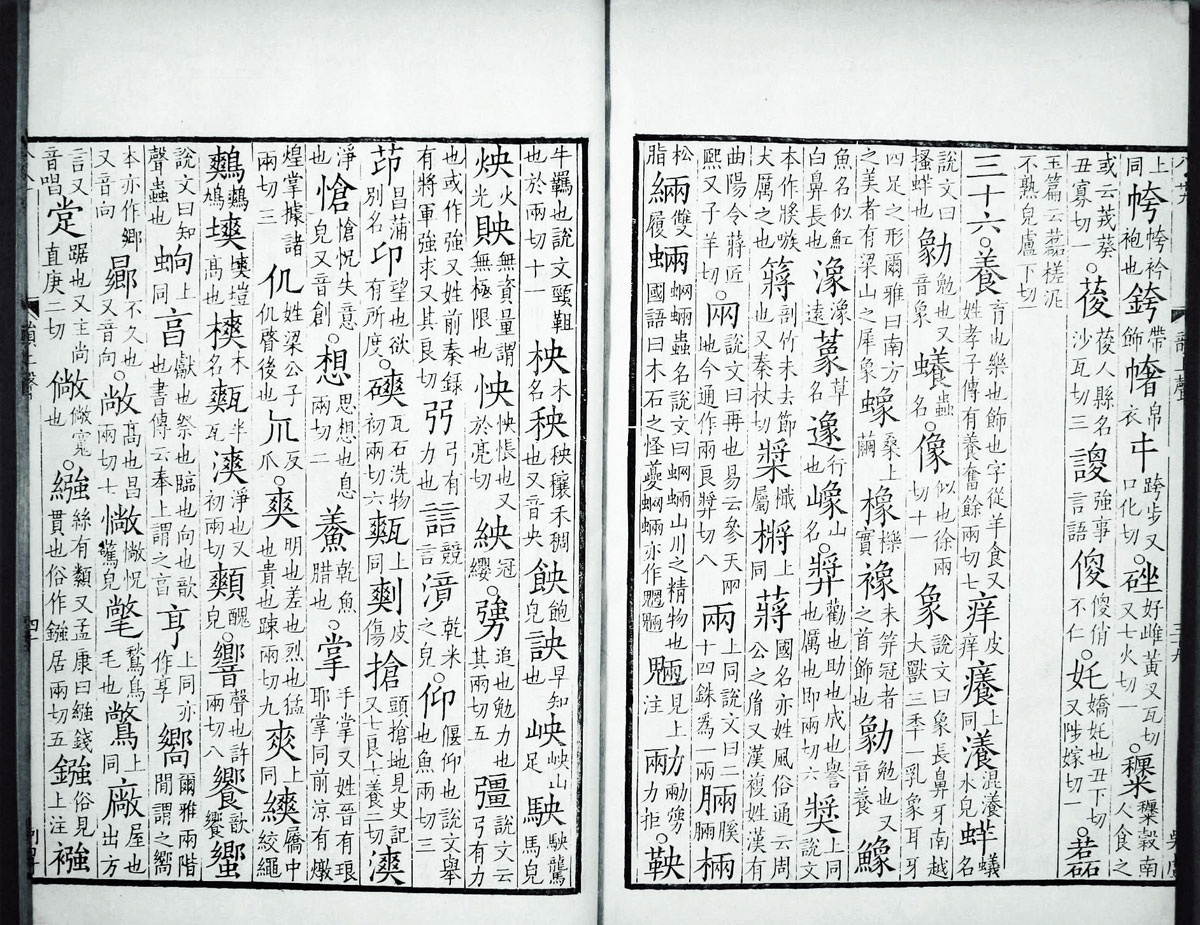 上同 袴衿袍也 銙帶飾 帛衣 㐄跨步又口化切 。硰好雌黃又瓦切又七火切一 。穀南人食之
或云荗葵丑寡切一 。葰葰人縣名沙瓦切三 謏強事言語 傻傻俏不仁 。奼嬌奼也丑下切又陟嫁切一 。
玉篇云槎泥不熟皃盧下切一
三十六。養育也樂也飾也字從羊食又姓孝子傳有養奮餘兩切七 痒皮痒 癢上同 瀁混瀁水皃 蛘蟻名
說文曰搔蛘也 勨勉也又音象 蟲名 。像似也徐兩切十一 象說文曰象長鼻牙南越大獸三秊一乳象耳牙
四足之形爾雅曰南方之美者有梁山之犀象 蟓桑上繭 橡櫟實 襐未笄冠者之首飾也 勨勉也又音養 鱌
魚名似魟白鼻長也 潒潒遠 草名 行也 嶑山名 。獎勸也助也成也譽也厲也即兩切六 獎上同說文
本作㢡嗾犬厲之也 剖竹未去節也又秦杖切 槳檝屬 㯍上同 蔣國名亦姓風俗通云周公之胤又漢複姓漢有
曲陽令蔣匠熙又子羊切 。㒳說文曰再也易云參天㒳地今通作兩良弉切八 兩上同說文曰二十四銖爲一兩 脼脼膎
松脂 緉雙履 蜽蝄蜽蟲名說文曰蝄蜽山川之精物也國語曰木石之怪夔蝄蜽亦作魍魎 魎見上注 勥力拒 。鞅
牛羈也說文頸靼也於兩切十一 柍木名 秧秧穰禾稠也又音央 飽皃 詇早知也 岟岟山足 駚駚䮾馬皃
炴火光 無資量謂無極限也 怏怏悵也又於亮切 紻冠纓 。勥追也勉力也其兩切五 彊說文云弓有力
也或作強又姓前秦錄有將軍強求又其良切 弜弓有力也 誩競言 滰乾米之皃 。仰偃仰也說文舉也魚兩切三
茚昌蒲別名 卬望也欲有所度 。磢瓦石洗物初兩切六 㼽上同 皮傷 搶頭搶地見史記又七良七養二切 漺
淨也 愴愴怳失意皃又音創 。想思想也息兩切二 鯗乾魚腊也 。掌手掌又姓晉有琅耶掌同前涼有燉
煌掌據諸兩切三 仉姓梁公子仉啓後也 反爪 。爽明也差也烈也猛也貴也踈兩切九 上同 屩中絞繩
鷞鷞鳩 塽塽塏高也 樉木名 㼽半瓦 漺淨也又初兩切 醜 。響聲也許兩切八 饗歆饗 蠁
說文曰知聲蟲也 蚼上同 亯獻也祭也臨也向也歆也書傳云奉上謂之亯 亨上同亦作享 嚮爾雅兩階閒謂之嚮
本亦作鄉又音向 曏不久也又音向 。敞高也昌兩切七 惝惝怳驚皃 氅鶖鳥毛也 上同 廠屋也出方
言又音唱 踞也又主尚直庚二切 寬也 。繦絲有纇又孟康曰繦錢貫也俗作鏹居兩切五 鏹俗見上注 襁